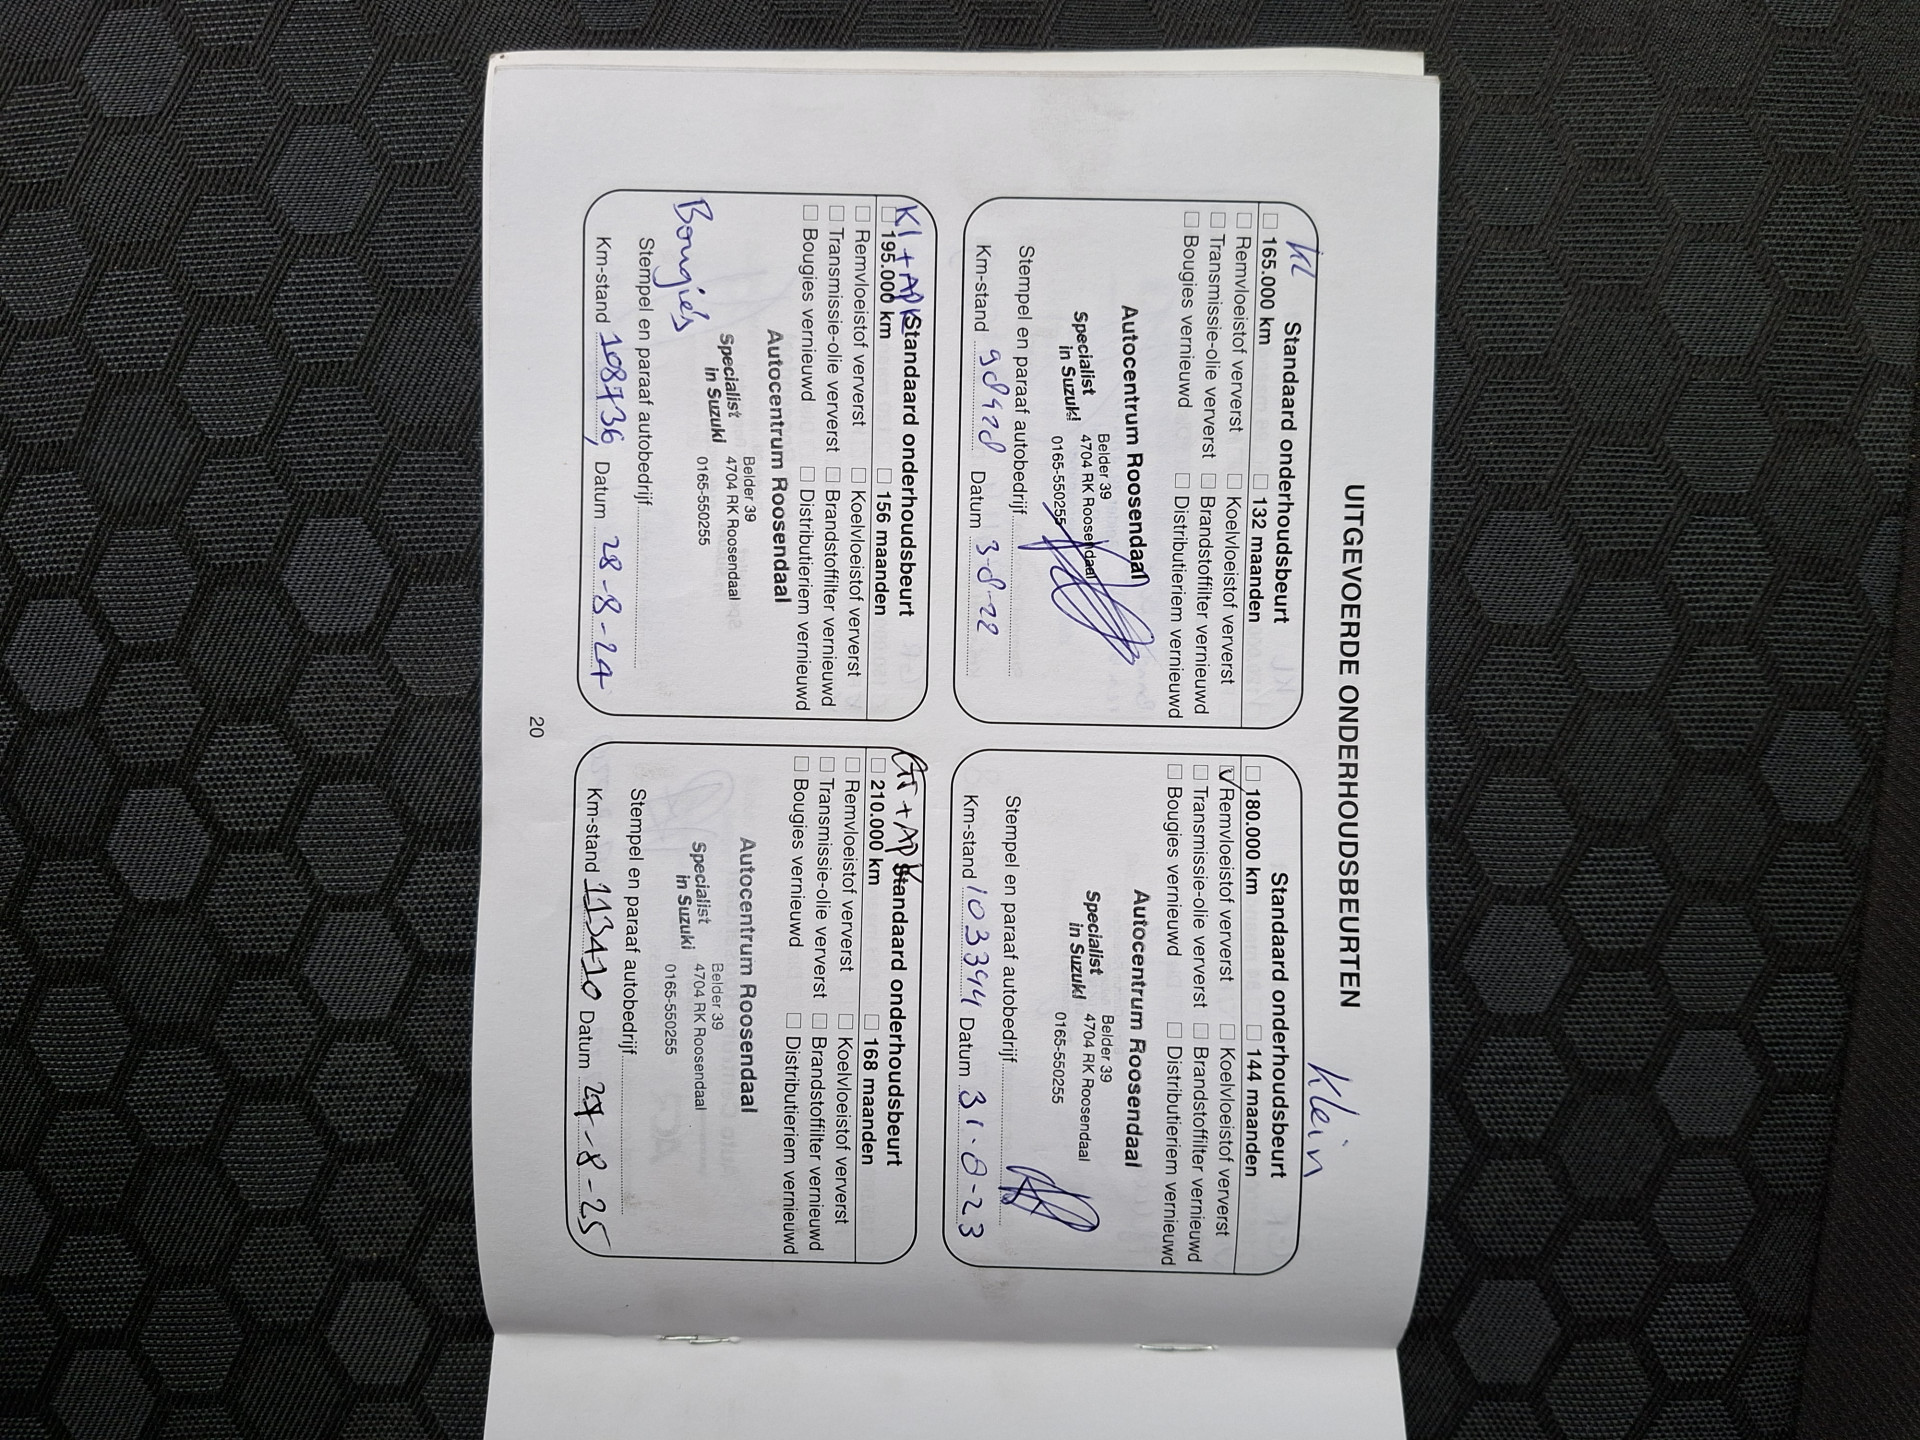 UITGEVOERDE ONDERHOUDSBEURTEN
Klein
kl
Standaard onderhoudsbeurt
165.000 km 132 maanden
Remvloeistof ververst Koelvloeistof ververst
Transmissie-olie ververst Brandstoffilter vernieuwd
Bougies vernieuwd Distributieriem vernieuwd
Autocentrum Roosendaal
Specialist
in Suzuki
Belder 39
4704 RK Roosendaal
0165-550255
Stempel en paraaf autobedrijf
Km-stand Datum 3-8-22
Standaard onderhoudsbeurt
180.000 km 144 maanden
Remvloeistof ververst Koelvloeistof ververst
Transmissie-olie ververst Brandstoffilter vernieuwd
Bougies vernieuwd Distributieriem vernieuwd
Autocentrum Roosendaal
Specialist
in Suzuki
Belder 39
4704 RK Roosendaal
0165-550255
Stempel en paraaf autobedrijf
Km-stand 103394 Datum 31-8-23
Kl + APK
Standaard onderhoudsbeurt
195.000 km 156 maanden
Remvloeistof ververst Koelvloeistof ververst
Transmissie-olie ververst Brandstoffilter vernieuwd
Bougies vernieuwd Distributieriem vernieuwd
Autocentrum Roosendaal
Specialist
in Suzuki
Belder 39
4704 RK Roosendaal
0165-550255
Bougie's
Stempel en paraaf autobedrijf
Km-stand 108736, Datum 28-8-24
Gr + APK
Standaard onderhoudsbeurt
210.000 km 168 maanden
Remvloeistof ververst Koelvloeistof ververst
Transmissie-olie ververst Brandstoffilter vernieuwd
Bougies vernieuwd Distributieriem vernieuwd
Autocentrum Roosendaal
Specialist
in Suzuki
Belder 39
4704 RK Roosendaal
0165-550255
Stempel en paraaf autobedrijf
Km-stand 113410 Datum 27-8-25
20